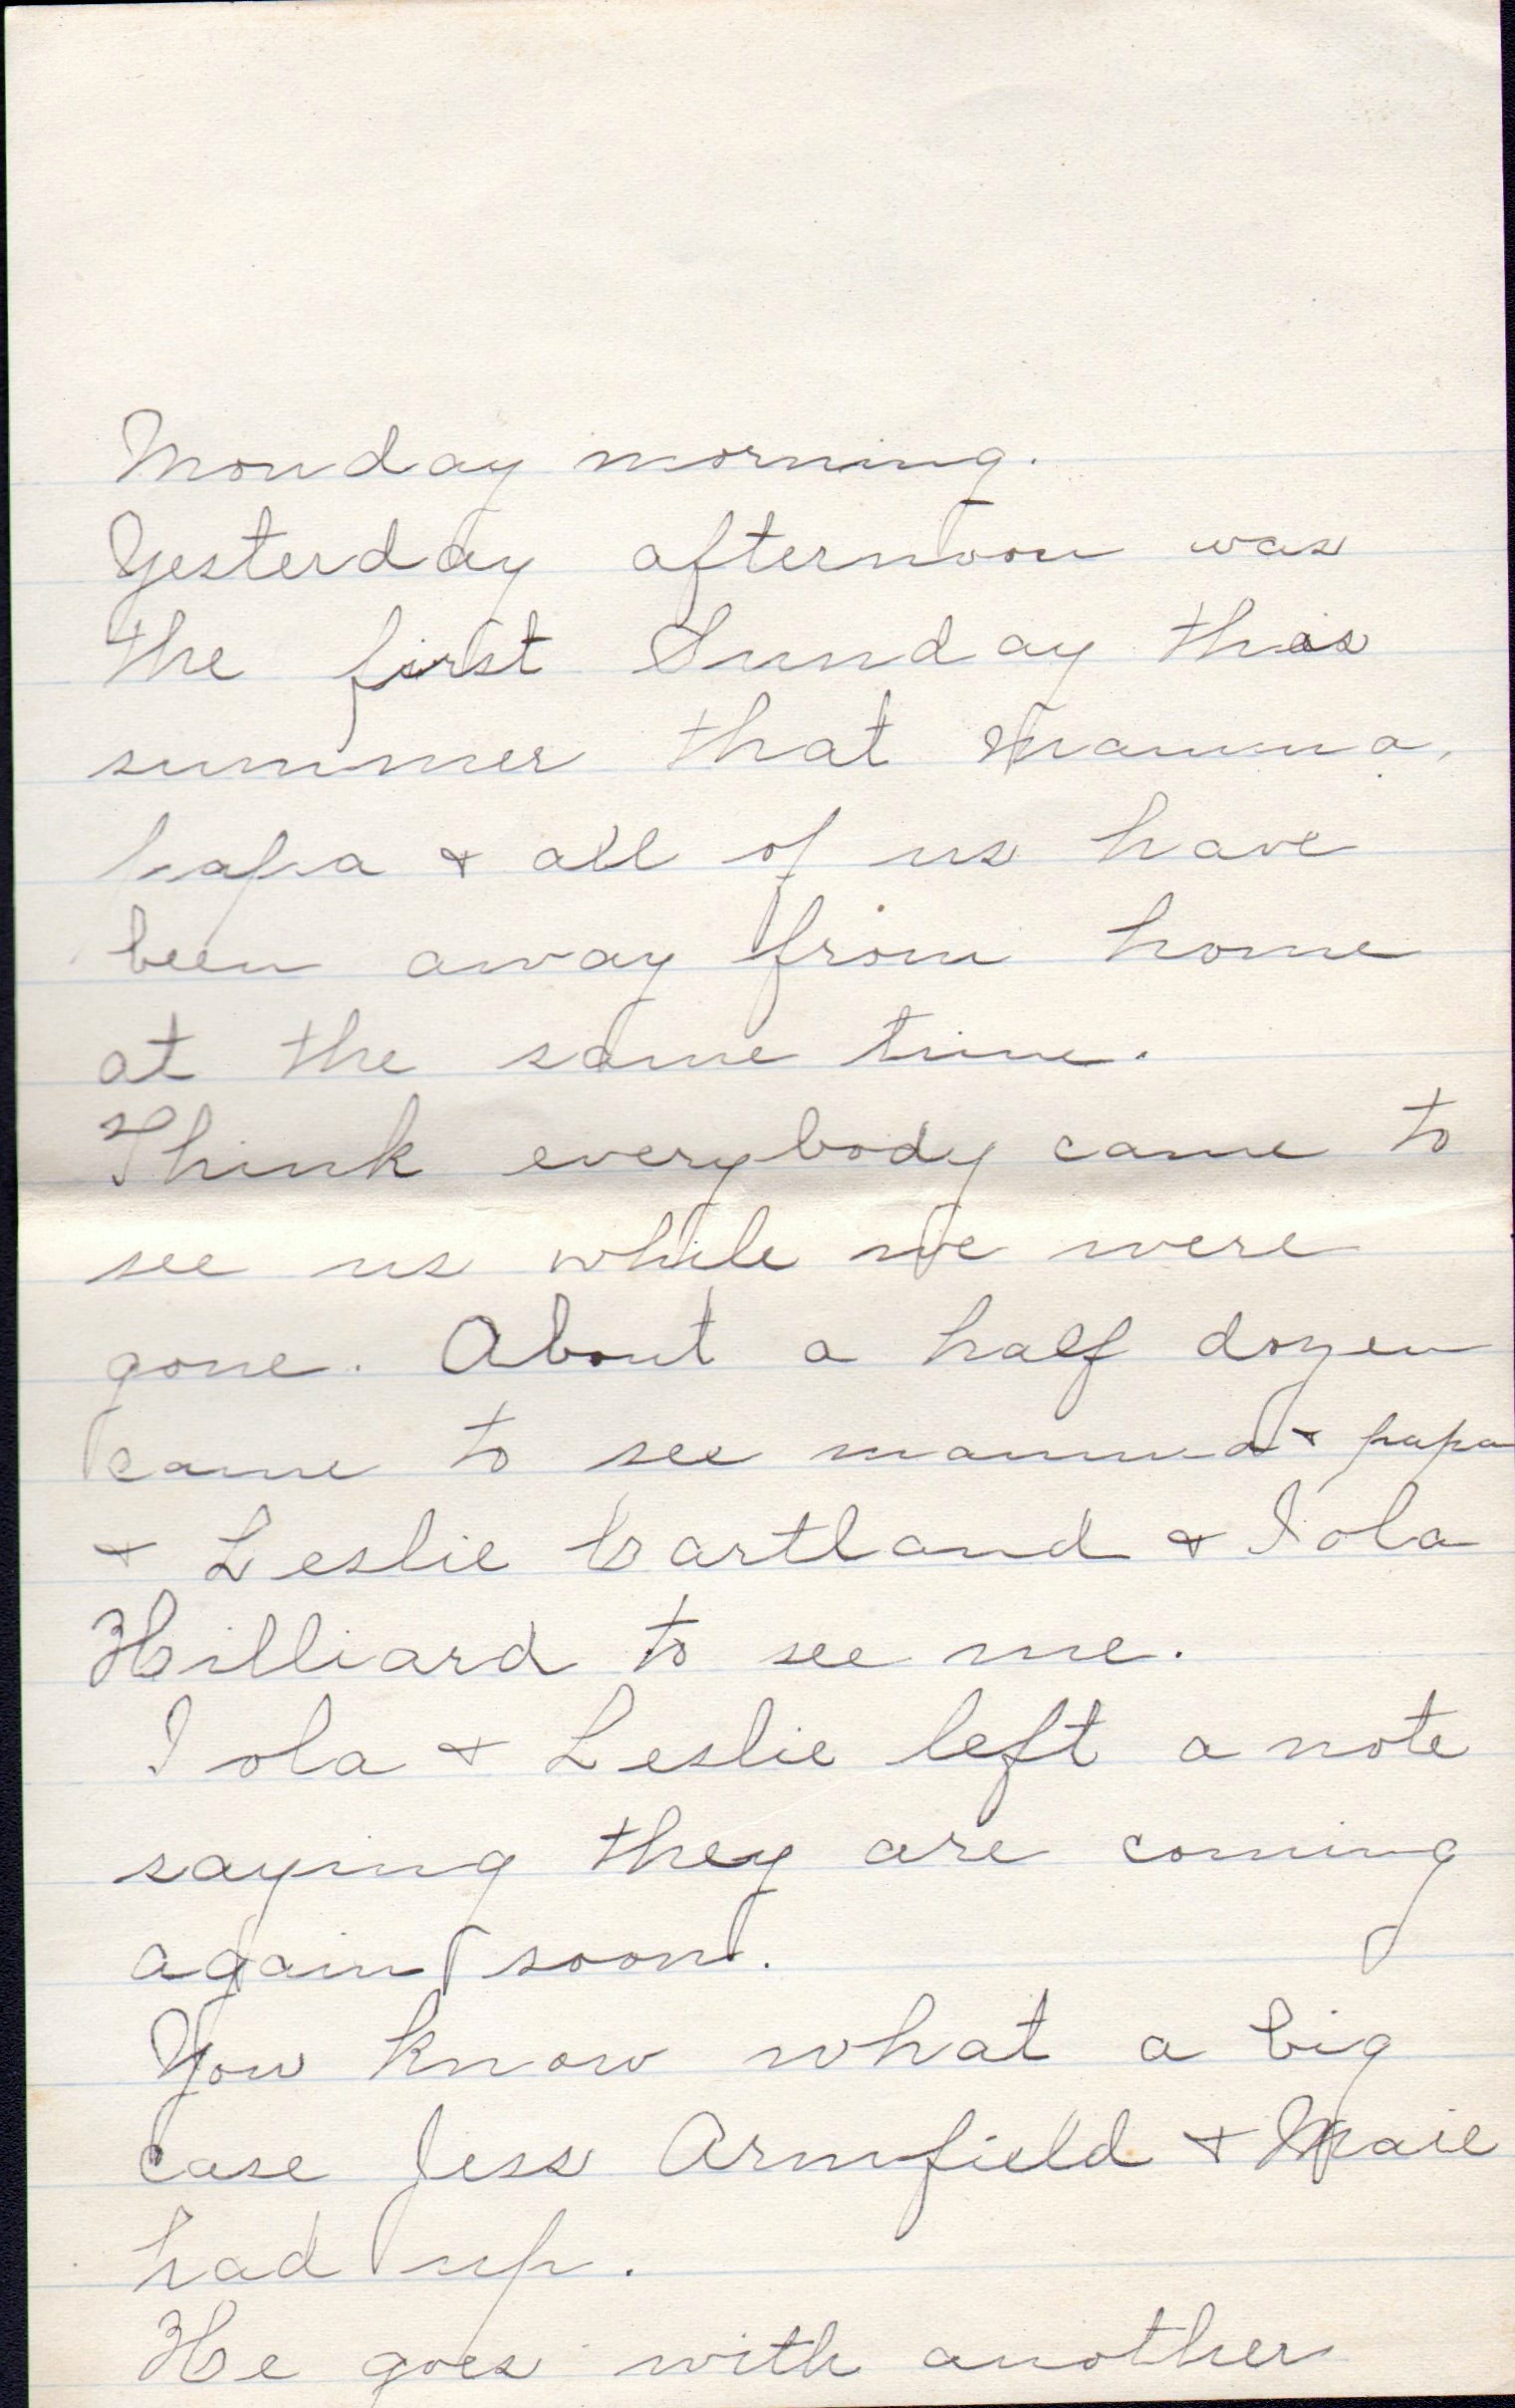 Monday morning.
Yesterday afternoon was
the first Sunday this
summer that Mamma,
papa & all of us have
been away from home
at the same time.
Think everybody came to
see us while we were
gone. About a half dozen
came to see mamma & papa
& Leslie Cartland & Iola
Hilliard to see me.
Iola & Leslie left a note
saying they are coming
again soon.
You know what a big
case Jess Armfield & Maie
had up.
He goes with another